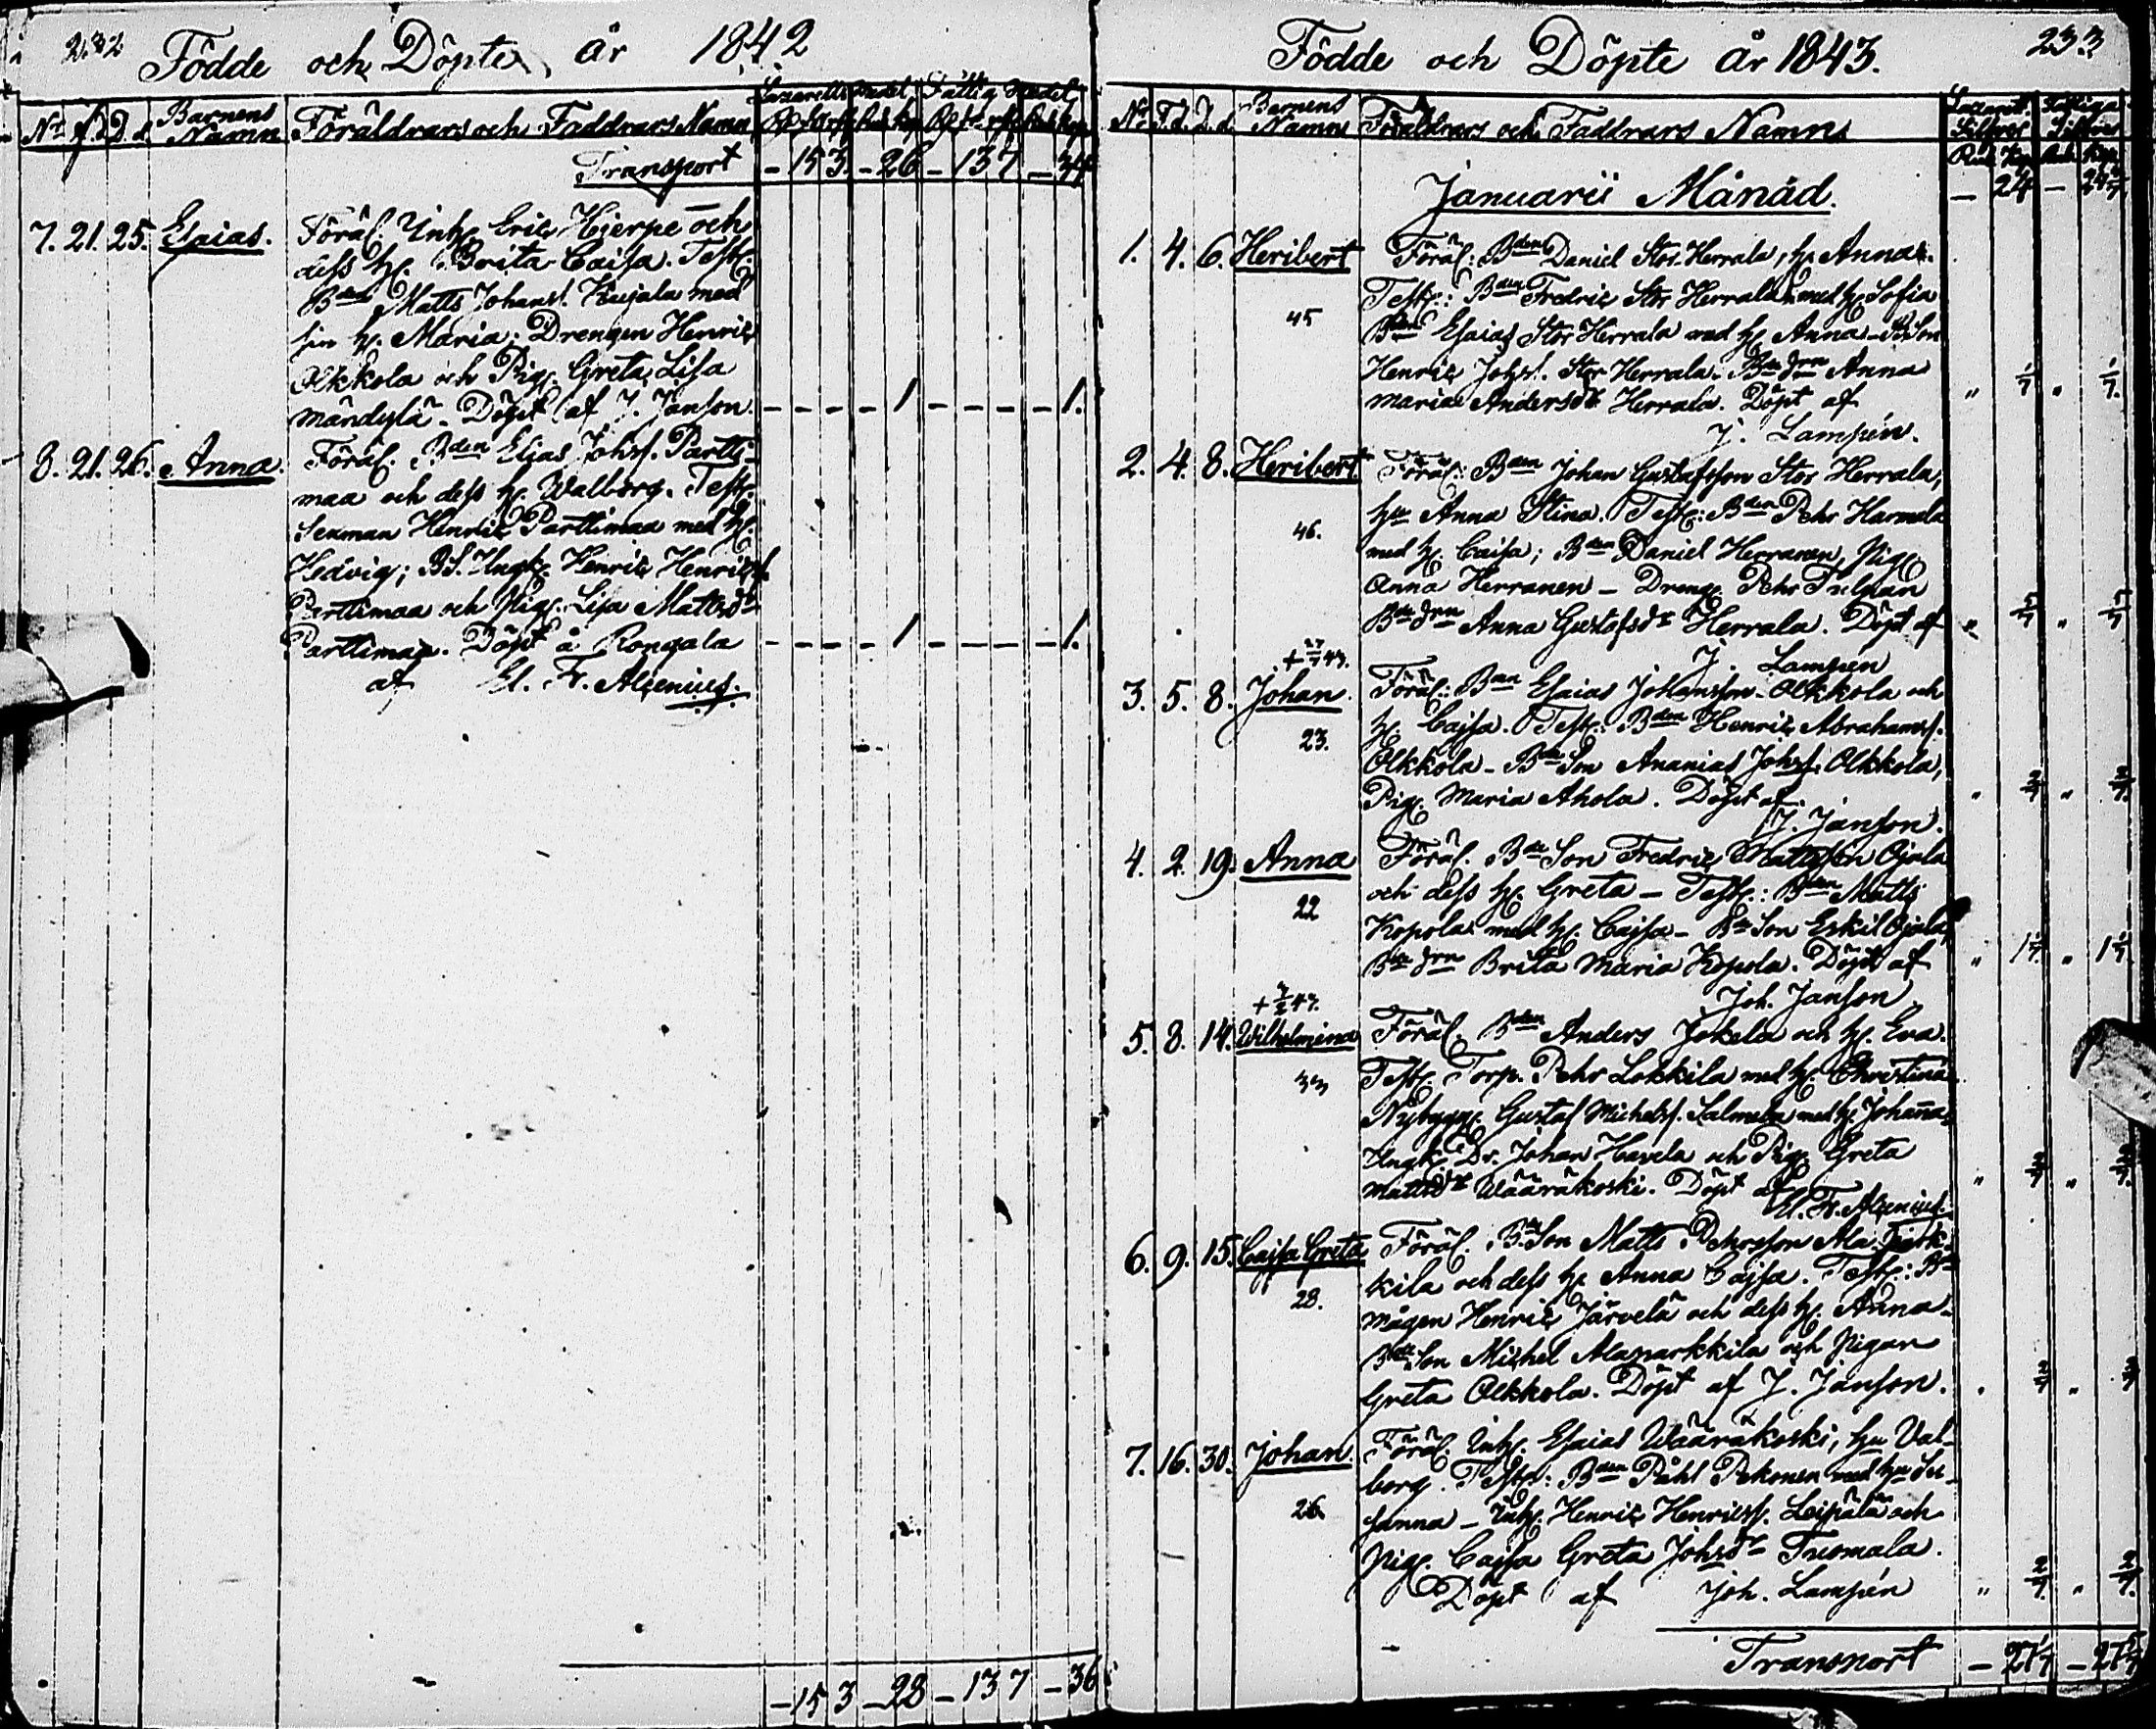 232 Födde och Döpte år 1842
No f.d. D.d. Barnens Namn Föräldrars och Faddrars Namn Lazaretts Medel Fattig Medel
Transport - 15 3. - 26 - 13 7 - 34
7. 21. 25. Esaias. Föräl. Inh. Eric Hjerpe och
dess h. Brita Caisa. Test.
Bden Matts Johans. Kujala med
sin h. Maria; Drengen Henric
Olkkola och Pig. Greta Lisa
Mändylä. Döpt af J. Janson. 1 1.
8. 21. 26. Anna. Föräl. Bden Elias Johs. Partti-
maa och dess h. Walborg. Test.
Sexman Henric Parttimaa med h.
Hedvig; BS. Ungk. Henric Henrics.
Parttimaa och Pig. Lisa Mattsdr
Parttimaa. Döpt å 1 1.
af El. Fr. Alcenius.
- 15 3 - 28 - 13 7 - 36
Födde och Döpte år 1843. 233
No F.d. D.d. Barnens Namn Föräldrars och Faddrars Namn Lazarett Silfver Fattiga Silfver
Rub. Kop. Rub. Kop.
Januarii Månad.
1. 4. 6. Heribert Föräl: Bden Daniel Stor-Herrala, h. Anna.
Test: Bden Fredric Stor Herrala med h. Sofia
45 Bden Esaias Stor Herrala med h. Anna
Henric Johs. Stor Herrala. Bdedrn Anna
Maria Andersdr Herrala. Döpt af " 1/7 " 1/7.
J. Lampén.
2. 4. 8. Heribert Föräl: Bden Johan Gustafsson Stor Herrala,
hu Anna Stina. Test: Bden Pehr Harmala
46. med h. Caisa; Bden Daniel Herranen, Pig.
Anna Herranen - Dreng. Pehr
Bdedrn Anna Gustafsdr Herrala. Döpt af " 5/7 " 5/7
J. Lampén
3. 5. 8. Johan. Föräl: Bden Esaias Johansson Olkkola och
h. Cajsa. Test: Bden Henric Abrahams.
23. Olkkola - Bde Son Ananias Johs. Olkkola,
Pig. Maria Ahola. Döpt af " 2/7 " 2/7.
J. Janson.
4. 2. 19. Anna Föräl. Bde Son Fredric Mattsson Ojala
och dess h. Greta - Test: Bden Matts
22 Kopola med h. Cajsa - Bde Son Eskil Ojala,
Bdedrn Brita Maria Kopola. Döpt af
Joh. Janson
5. 8. 14. Wilhelmiina Föräl. Bden Anders Jokela och h. Eva.
33 Test. Torp. Pehr Lokkila med h. Christina
Nybygg. Gustaf Michels. Salmela med h. Johanna
Ungk. Dr. Johan Havela och Pig. Greta
Mattsdr Wääräkoski. Döpt af " 2/7 " 2/7.
El. Fr. Alcenius.
6. 9. 15. Cajsa Greta Föräl. Bde Son Matts Pehrsson Ala Park-
kila och dess h. Anna Cajsa. Test: Bde
28. mågen Henric Järvelä och dess h. Anna
Bde Son Michel Alaparkkila och Pigan
Greta Olkkola. Döpt af J. Janson. " 2/7 " 2/7
7. 16. 30. Johan. Föräl. Inh. Esaias Wääräkoski, hu Val-
borg. Test: Bden Påhl Pekonen med hu Su-
26. sanna - Inh. Henric Henricss. Leipälä och
Pig. Cajsa Greta Johsdr Tuomala.
Döpt af Joh. Lampén " 2/7. " 2/7.
Transport